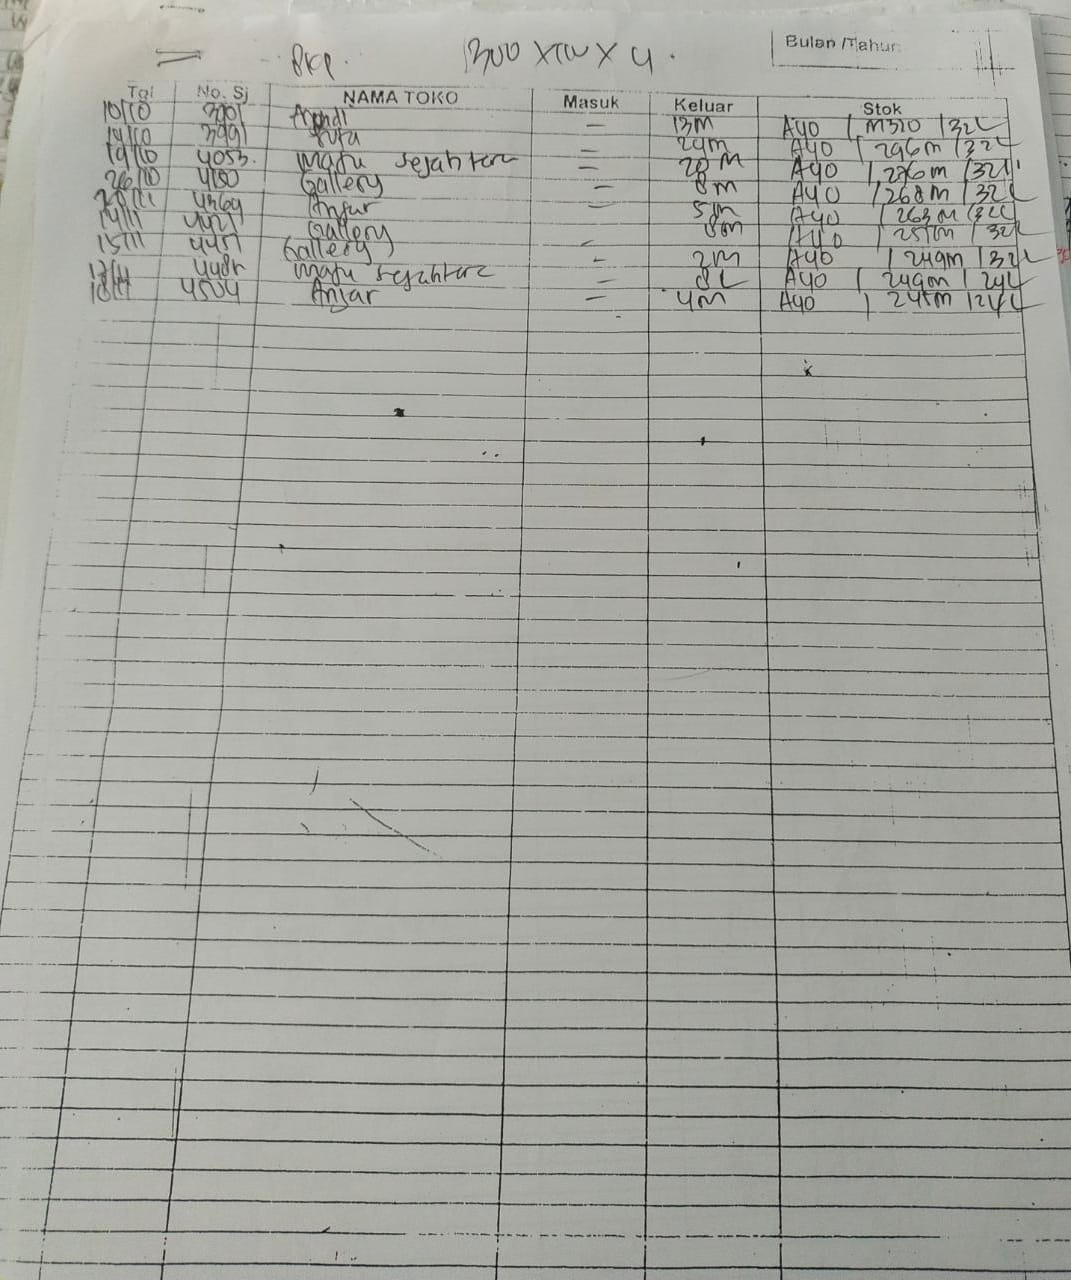 BKP. 1300 X TW X 4.
Bulan /Tahun
Tgl No. Sj NAMA TOKO Masuk Keluar Stok
10/10 3901 - 13M A40 / M320 / 32L
14/10 3991 Putra - 24m A40 / 296m / 32L
19/10 4053. Maju Sejahtera - 20 M A40 / 276m / 32L
26/10 4150 Gallery - 8m A40 / 268m / 32L
4369 Anjar - 5m A40 / 263m / 32L
14/11 4421 Gallery 8m A40 / 32L
15/11 4451 Gallery - 2m A40 / 249m / 32L
4485 Maju Sejahtera - 8L A40 / 249m / 24L
18/11 4504 Anjar - 4m A40 / 245m / 24L